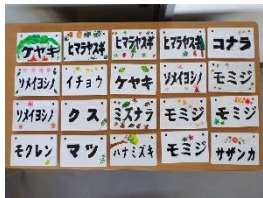 ケヤキ
ヒマラヤスギ
ヒマラヤスギ
ヒマラヤスギ
コナラ
ソメイヨシノ
イチョウ
ケヤキ
ソメイヨシノ
モミジ
ソメイヨシノ
クス
ミズナラ
モミジ
モミジ
モクレン
マツ
ハナミズキ
モミジ
サザンカ